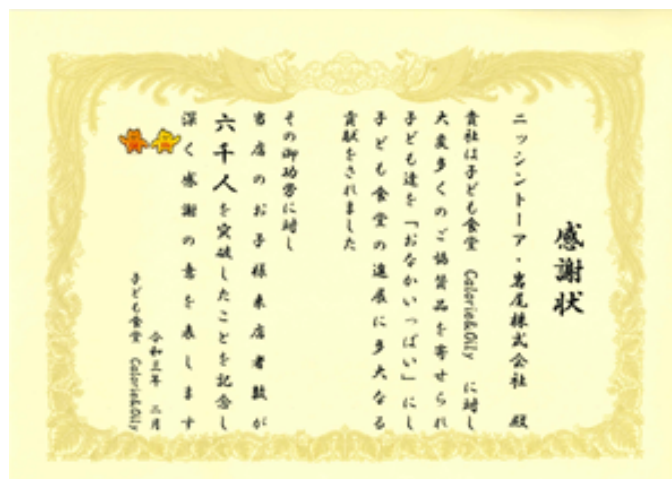 感謝状
ニッシントーア・岩尾株式会社 殿
貴社は子ども食堂 Calorie&Oily に対し
大変多くのご協賛品を寄せられ
子ども達を「おなかいっぱい」にし
子ども食堂の進展に多大なる
貢献をされました
その御功労に対し
当店のお子様来店者数が
六千人を突破したことを記念し
深く感謝の意を表します
令和三年 二月
子ども食堂 Calorie&Oily